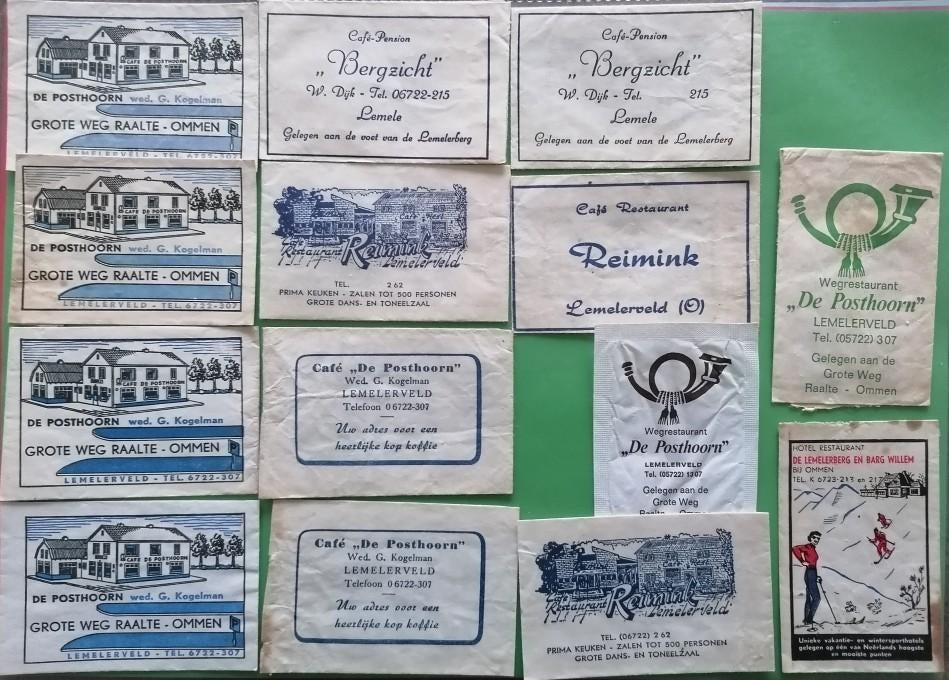 CAFE DE POSTHOORN
DE POSTHOORN wed. G. Kogelman
GROTE WEG RAALTE - OMMEN P
LEMELERVELD - TEL. 6722-307
CAFE DE POSTHOORN
DE POSTHOORN wed. G. Kogelman
GROTE WEG RAALTE - OMMEN P
LEMELERVELD - TEL. 6722-307
CAFE DE POSTHOORN
DE POSTHOORN wed. G. Kogelman
GROTE WEG RAALTE - OMMEN P
LEMELERVELD - TEL. 6722-307
CAFE DE POSTHOORN
DE POSTHOORN wed. G. Kogelman
GROTE WEG RAALTE - OMMEN P
LEMELERVELD - TEL. 6722-307
Café-Pension
„Bergzicht"
W. Dijk - Tel. 06722-215
Lemele
Gelegen aan de voet van de Lemelerberg
Café
Restaurant Reimink
Lemelerveld
TEL. 2 62
PRIMA KEUKEN - ZALEN TOT 500 PERSONEN
GROTE DANS- EN TONEELZAAL
Café „De Posthoorn"
Wed. G. Kogelman
LEMELERVELD
Telefoon 0 6722-307
Uw adres voor een
heerlijke kop koffie
Café „De Posthoorn"
Wed. G. Kogelman
LEMELERVELD
Telefoon 0 6722-307
Uw adres voor een
heerlijke kop koffie
Café-Pension
„Bergzicht"
W. Dijk - Tel. 215
Lemele
Gelegen aan de voet van de Lemelerberg
Café Restaurant
Reimink
Lemelerveld (O)
Wegrestaurant
„De Posthoorn"
LEMELERVELD
Tel. (05722) 1307
Gelegen aan de
Grote Weg
Raalte - Ommen
Café
Restaurant Reimink
Lemelerveld
TEL. (06722) 2 62
PRIMA KEUKEN - ZALEN TOT 500 PERSONEN
GROTE DANS- EN TONEELZAAL
Wegrestaurant
„De Posthoorn"
LEMELERVELD
Tel. (05722) 307
Gelegen aan de
Grote Weg
Raalte - Ommen
HOTEL RESTAURANT
DE LEMELERBERG EN BARG WILLEM
BIJ OMMEN
TEL. K 6723-213 en 217
Unieke vakantie- en wintersporthotels
gelegen op één van Neêrlands hoogste
en mooiste punten